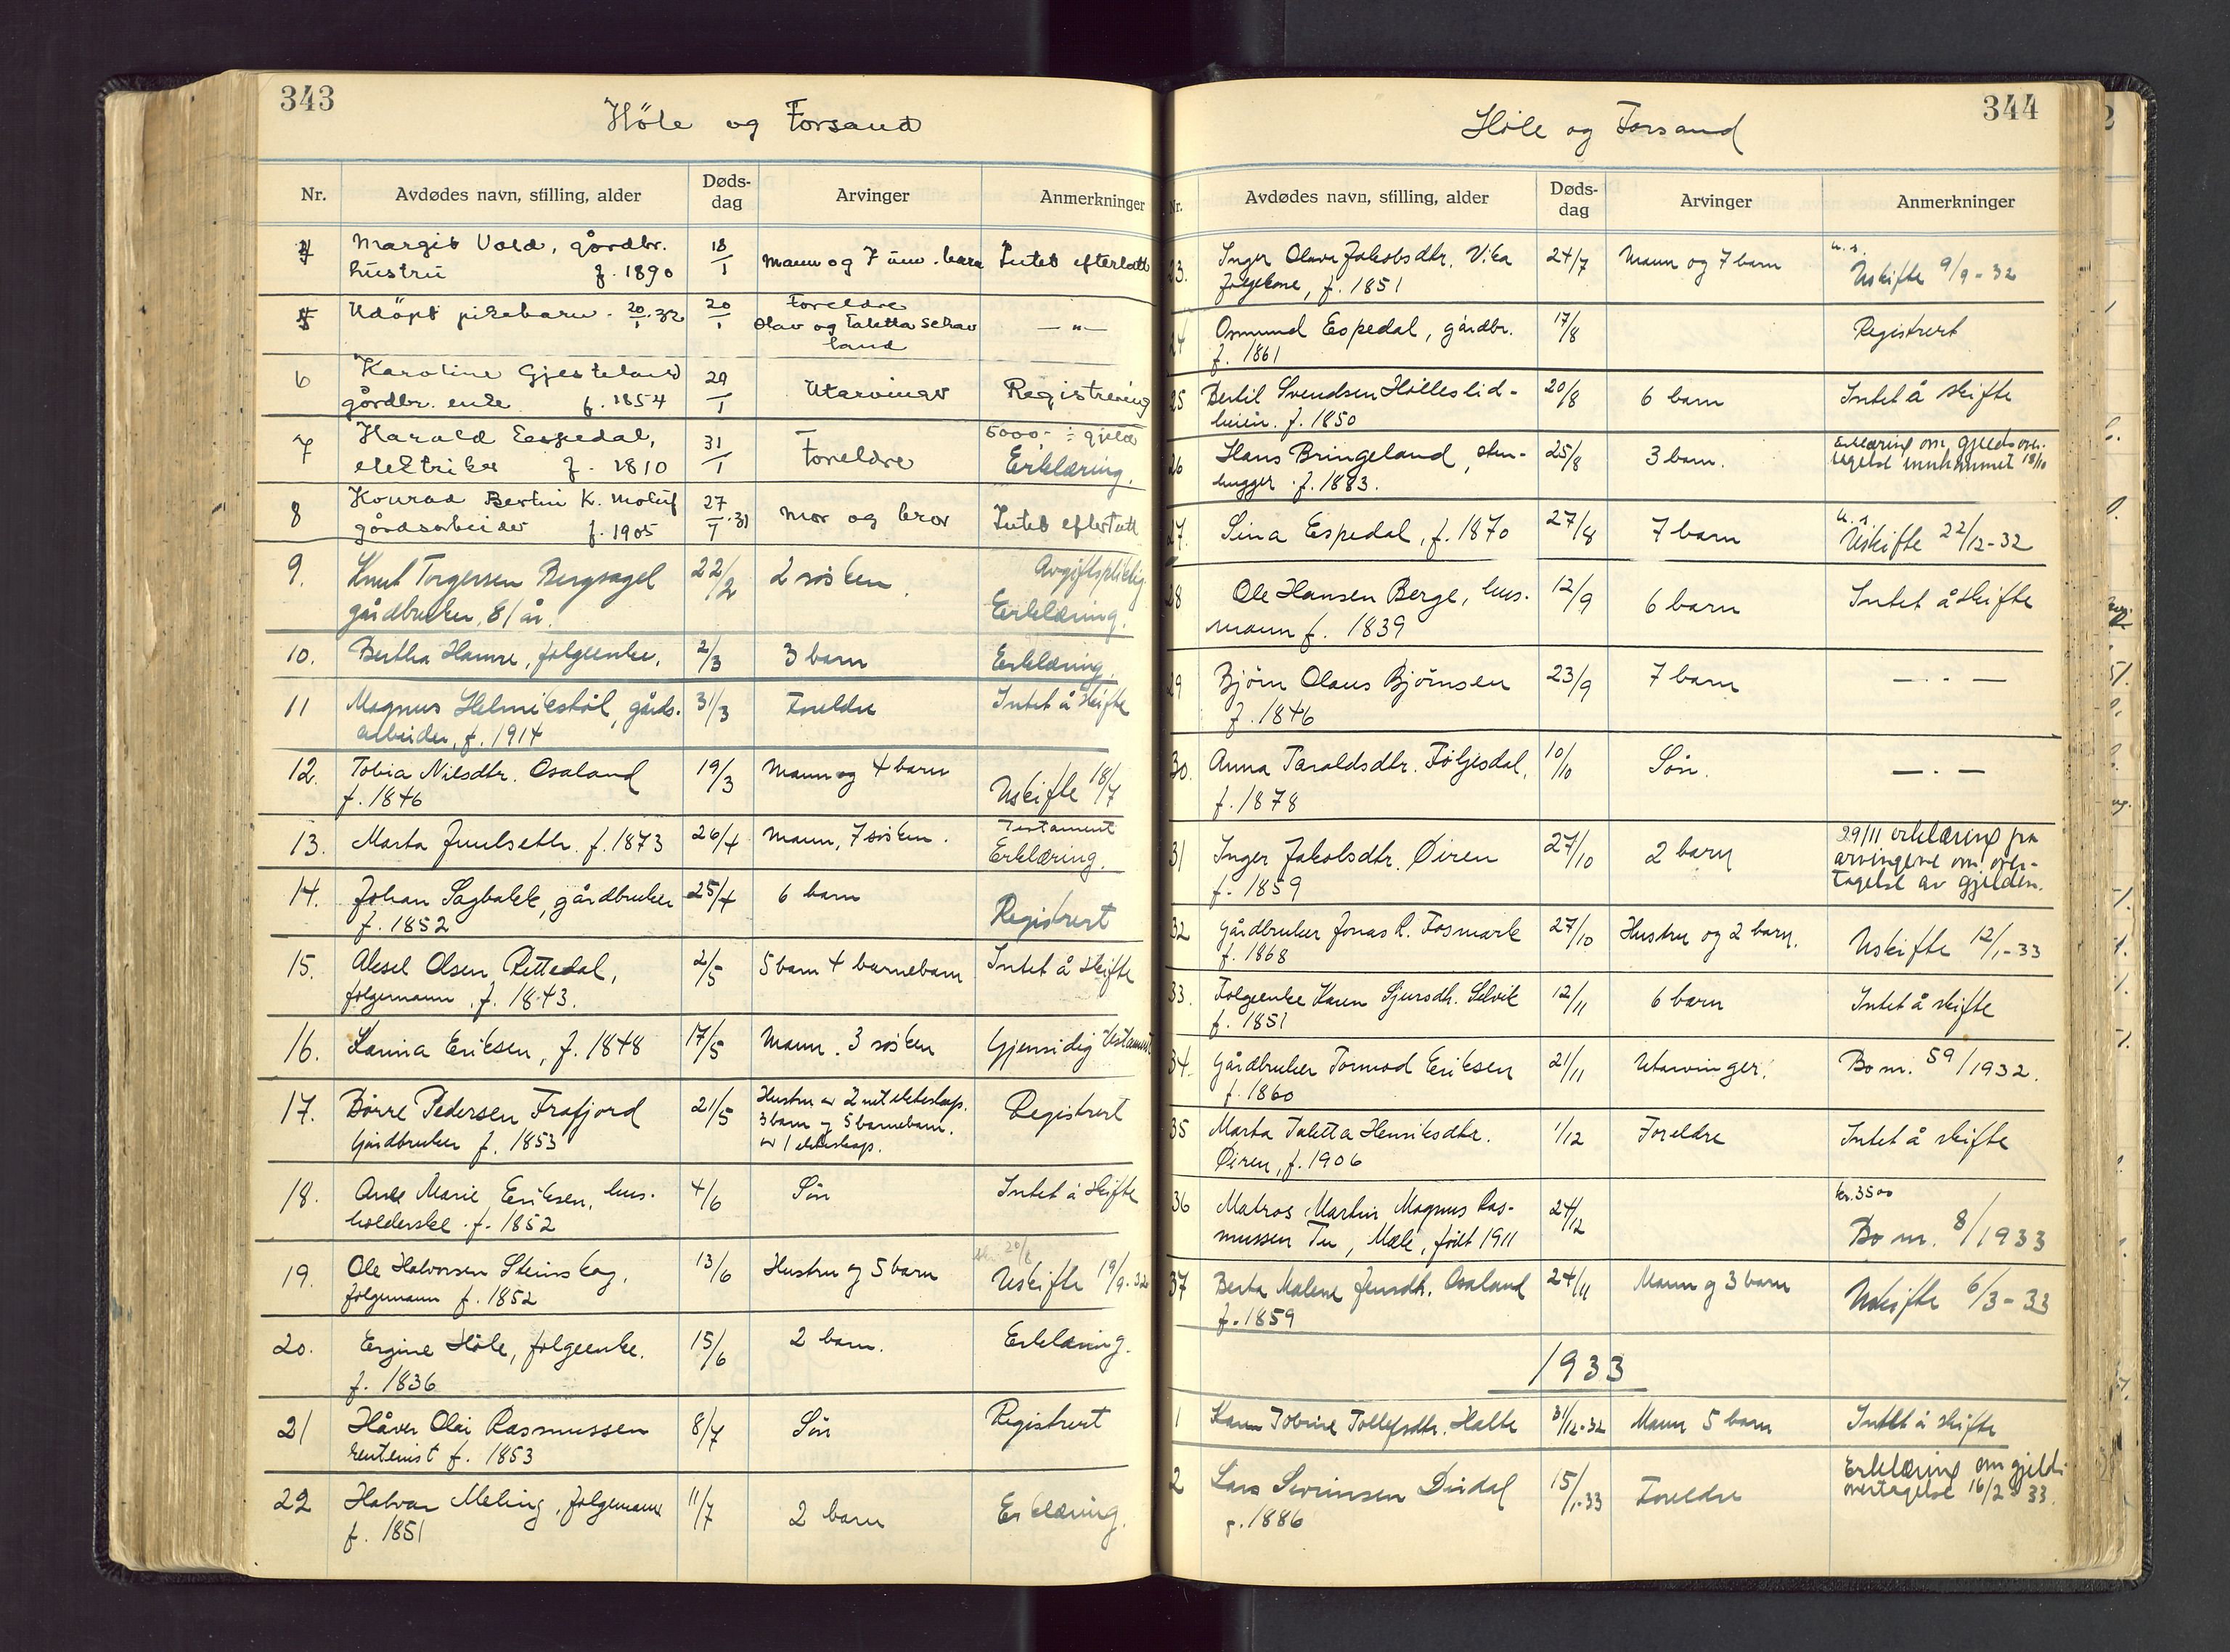 343
Höle og Forsand
Nr. Avdødes navn, stilling, alder Døds-dag Arvinger Anmerkninger
4 Margit Vold, gårdbr. 18/1 Mann og 7 um. barn Intet efterlatt
hustru f. 1890
5 Udöpt pikebarn. 20/1.32 20/1 Foreldre —"—
Olav og Taletta Schav
land
6 Karoline Gjesteland 29/1 Utarvinger Registrering
gårdbr. enke f. 1854
7 Harald Espedal, 31/1 Foreldre 5000,- ÷ gjeld
elektriker f. 1810 Erklæring.
8 Konrad Bertin K. 27/1.31 Mor og bror Intet efterlatt
gårdsarbeider f. 1905
9. Knut Torgersen Bergsagel 22/2 2 søsken. Avgiftspliktig
gårdbruker, 81 år. Erklæring.
10. Bertha Hamre, følgeenke, 2/3 3 barn Erklæring.
11 Magnus Helmikstøl, gårds- 31/3 Foreldre Intet å skifte
arbeider, f. 1914
12. Tobia Nilsdtr. Osaland 19/3 Mann og 4 barn Uskifte 18/7
f. 1846
13. Marta Juulsdtr. f. 1873 26/4 Mann, 7 søsken. Testament
Erklæring.
14. Johan Sagbakk, gårdbruker 25/4 6 barn Registrert
f. 1852
15. Aksel Olsen Rettedal, 2/5 5 barn 4 barnebarn Intet å skifte
følgemann, f. 1843.
16. Lanina Eriksen, f. 1848 17/5 Mann. 3 søsken Gjensidig testament
17. Børre Pedersen Frafjord 21/5 Hustru av 2net ekteskap. Registrert
Gårdbruker f. 1853 3 barn og 5 barnebarn.
av 1 ekteskap.
18. Ane Marie Eriksen, hus- 4/6 Søn Intet å skifte
holderske. f. 1852
19. Ole Halvorsen Steinskog, 13/6 Hustru og 5 barn 20/8
følgemann f. 1852 Uskifte 19/9-32
20. Ergine Höle, følgeenke. 15/6 2 barn. Erklæring.
f. 1836
21 Håver Olai Rasmussen 8/7 Søn Registrert
rentenist f. 1853
22 Halvar Meling, følgemann 11/7 2 barn Erklæring.
f. 1851
344
Höle og Forsand
Nr. Avdødes navn, stilling, alder Døds-dag Arvinger Anmerkninger
23. Inger Olava Jakobsdtr. Vika 24/7 Mann og 7 barn u.s.
følgekone, f. 1851 Uskifte 9/9-32
24 Osmund Espedal, gårdbr. 17/8 Registrert
f. 1861
25 Bertil Svendsen Hølleslid- 20/8 6 barn Intet å skifte
heien. f. 1850
26 Hans Bringeland, sten- 25/8 3 barn. Erklæring om gjeldsover-
hugger. f. 1883. tagelse innkommet 18/10
27. Sina Espedal, f. 1870 27/8 7 barn u.s.
Uskifte 22/12-32
28 Ole Hansen Berge, hus- 12/9 6 barn Intet å skifte
mann f. 1839
29 Bjørn Olaus Bjørnsen 23/9 7 barn — . . —
f. 1846
30. Anna Taraldsdtr. Følgesdal, 10/10 Søn. — . —
f. 1878
31 Inger Jakobsdtr. Øiren 27/10 2 barn 29/11 erklæring fra
f. 1859 arvingene om over-
tagelse av gjelden.
32 Gårdbruker Jonas R. Fosmark 27/10 Hustru og 2 barn. Uskifte 12/1-33
f. 1868
33. Følgeenke Karen Sjursdtr. Selvik 12/11 6 barn Intet å skifte
f. 1851
34. Gårdbruker Tormod Eriksen 21/11 Utarvinger. Bo nr. 59/1932.
f. 1860
35 Marta Taletta Henriksdtr. 1/12 Foreldre Intet å skifte
Øiren, f. 1906
36 Matros Martin Magnus Ras- 24/12 kr. 3500
mussen Tu, Mæle, født 1911 Bo nr. 8/1933
37 Berta Malene Jensdtr. Osaland 24/11 Mann og 3 barn Uskifte 6/3-33
f. 1859
1933
1 Karen Tobine Tollefsdtr. Halle 31/12-32 Mann 5 barn Intet å skifte
2 Lars Sevrinsen Dirdal 15/1-33 Foreldre Erklæring om gjelds-
f. 1886 overtagelse 16/2-33.